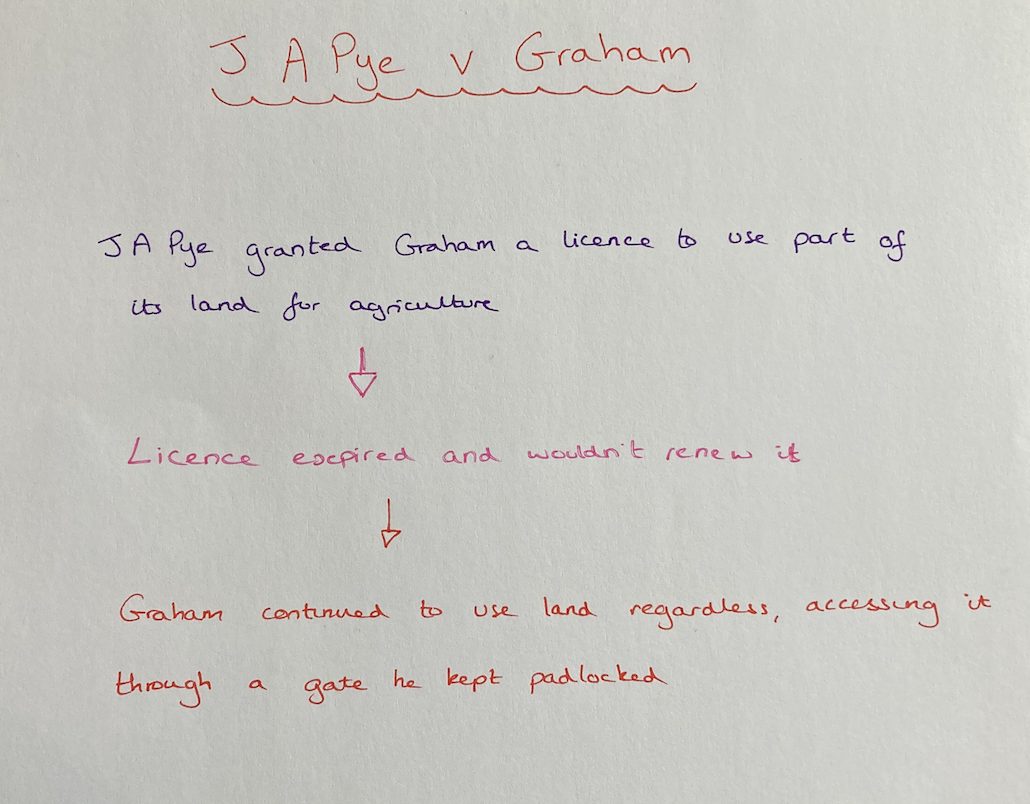 J A Pye v Graham
J A Pye granted Graham a licence to use part of
its land for agriculture
Licence expired and wouldn't renew it
Graham continued to use land regardless, accessing it
through a gate he kept padlocked